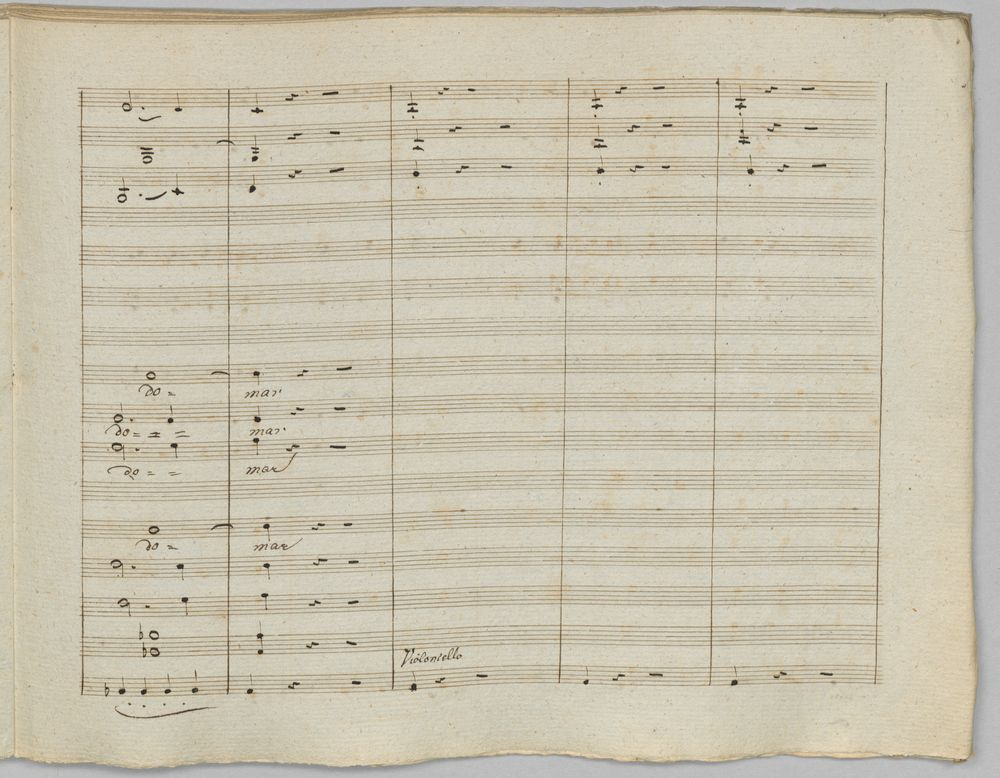 do = mar
do = = = mar
do = = mar
do = mar
Violoncello